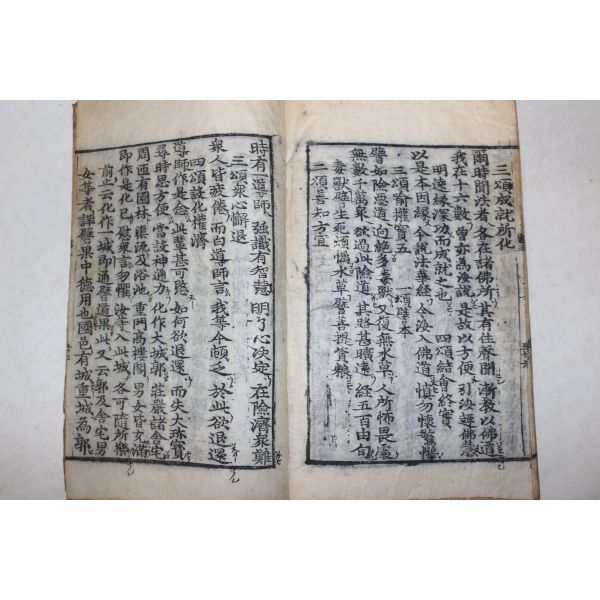 三頌成就所化
爾時聞法者各在諸佛所其有住聲聞漸教以佛道
我在十六數曾亦為汝說是故以方便引汝趣佛慧
明遠緣深功而成就之也 四頌結會終實
以是本因緣今說法華經令汝入佛道慎勿懷驚懼
三頌喻權實五 一頌譬本
譬如險惡道逈絶多毒獸又復無水草人所怖畏處
無數千萬衆欲過此險道其路甚曠遠經五百由旬
毒獸譬生死煩惱水草譬菩提資粮
二頌善知方宜
時有一導師強識有智慧明了心決定在險濟衆難
三頌衆心懈退
衆人皆疲倦而白導師言我等今頓乏於此欲退還
四頌設化權濟
導師作是念此輩甚可愍如何欲退還而失大珎寶
尋時思方便當設神通力化作大城郭莊嚴諸舍宅
周匝有園林渠流及浴池重門高樓閣男女皆充滿
即作是化已慰衆言勿懼汝等入此城各可隨所樂
前止云化作一城即通譬道果此又云郭及舍宅男
女等者詳譬果中德用也國邑有城重城為郭